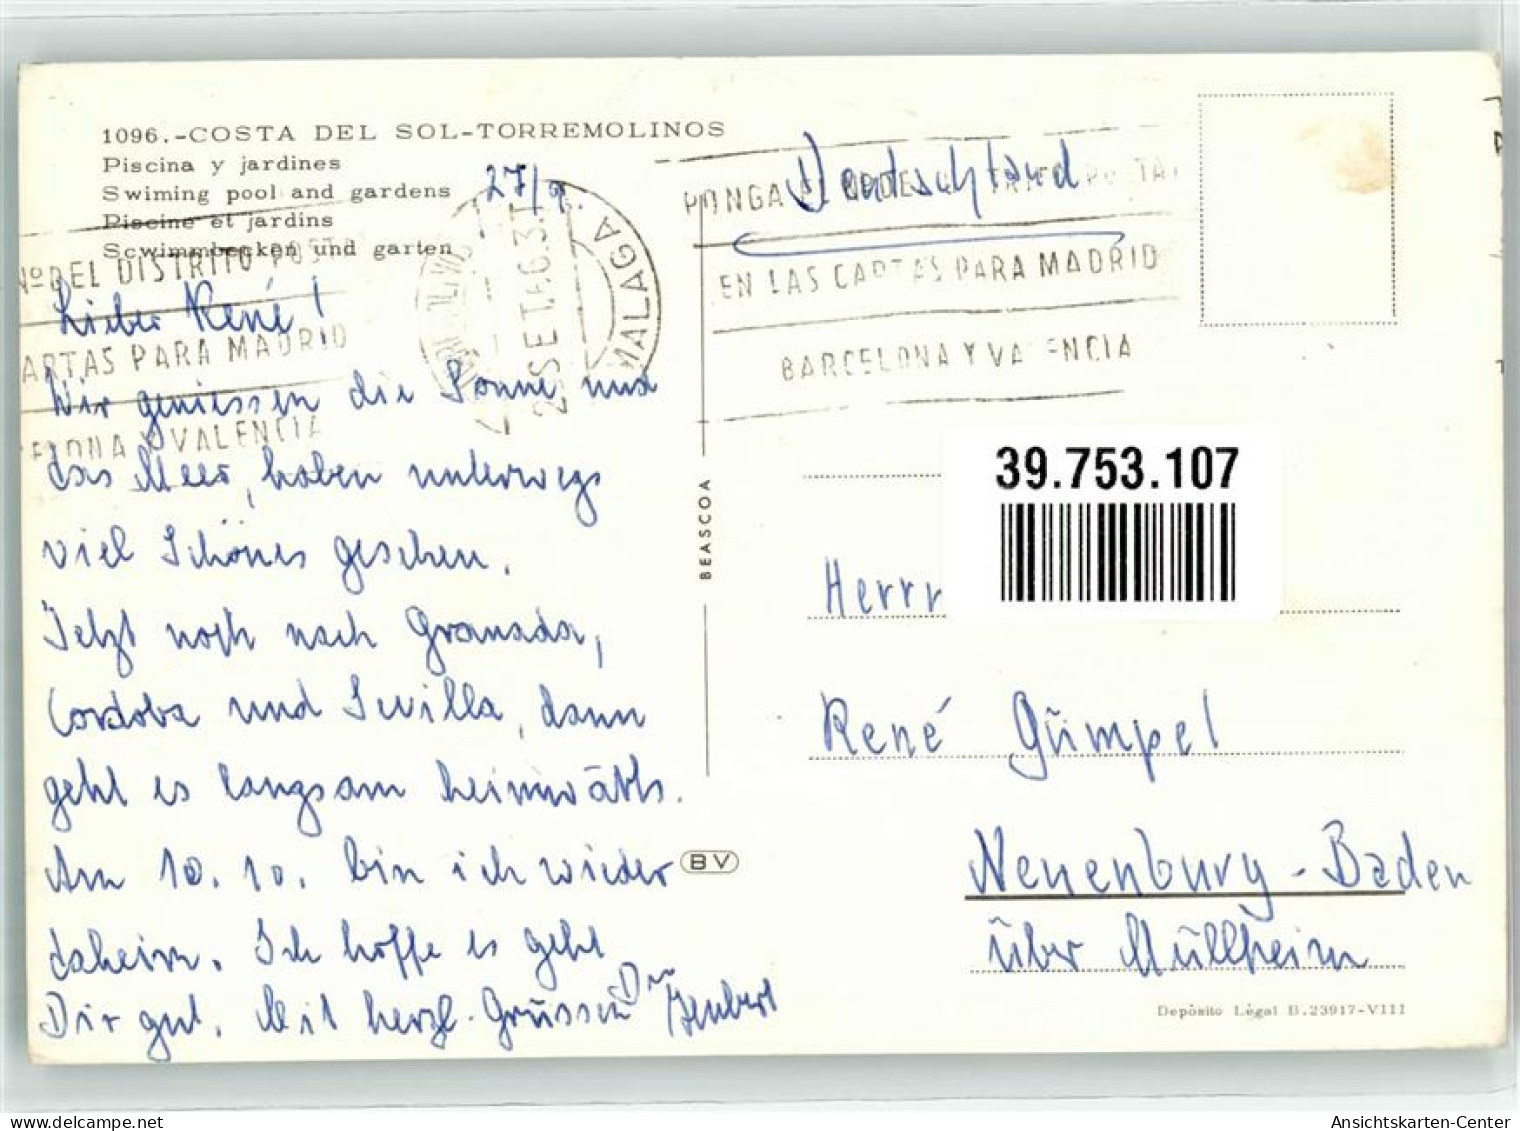 1096.-COSTA DEL SOL-TORREMOLINOS
Piscina y jardines
Swiming pool and gardens
Piscine et jardins
Scwimmbecken und garten
27/9.
MALAGA
Nº DEL DISTRITO POST
CARTAS PARA MADRID
CELONA Y VALENCIA
PONGA
EN LAS CARTAS PARA MADRID
BARCELONA Y VALENCIA
Deutschland
Lieber René!
Wir geniessen die Sonne und
das Meer, haben unterwegs
viel Schönes gesehen.
Jetzt noch nach Granada,
Cordoba und Sevilla, dann
geht es langsam heimwärts.
Am 10.10. bin ich wieder
daheim. Ich hoffe es geht
Dir gut. Mit herzl. Grüssen
BEASCOA
BV
39.753.107
Herrn
René Gümpel
Neuenburg - Baden
über Müllheim
Depòsito Légal B.23917-VIII
Ansichtskarten-Center